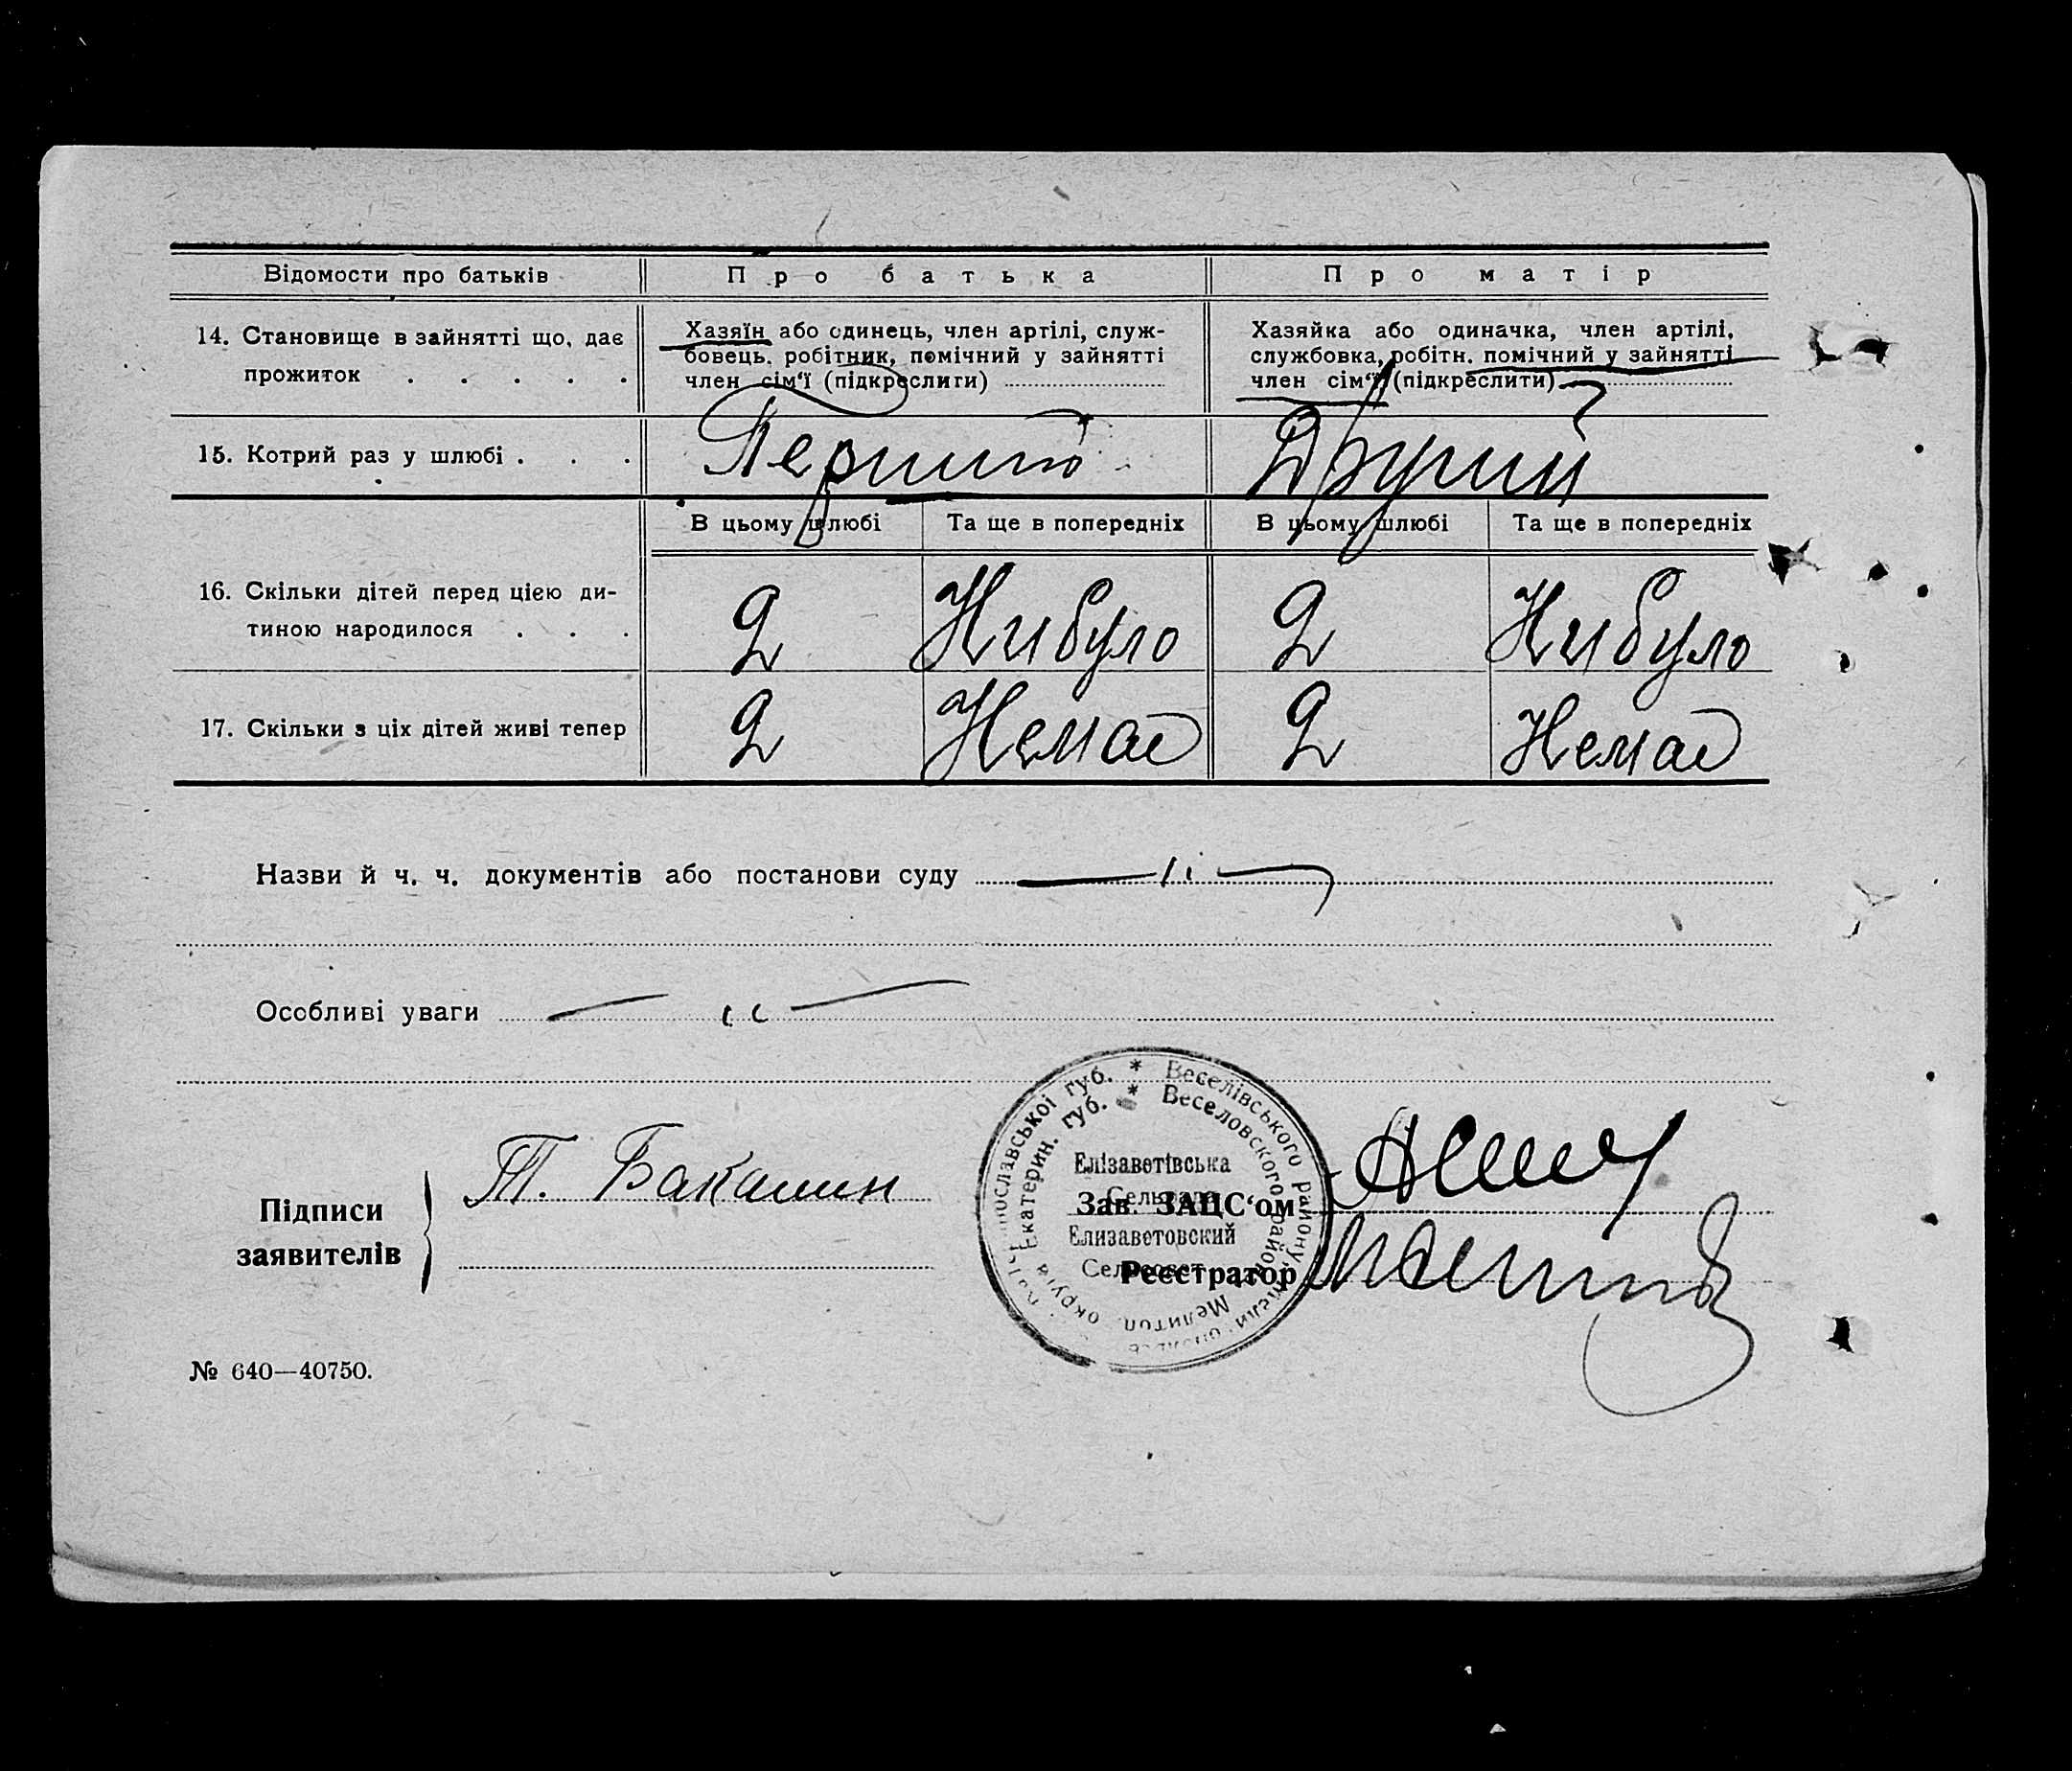 Відомости про батьків
Про батька
Про матір
14. Становище в зайнятті що, дає
прожиток . . . . .
Хазяїн або одинець, член артілі, служ-
бовець, робітник, помічний у зайнятті
член сім‘ї (підкреслити)
Хазяйка або одиначка, член артілі,
службовка, робітн. помічний у зайнятті
член сім‘ї (підкреслити)
15. Котрий раз у шлюбі . . .
Перший
Другий
В цьому шлюбі
Та ще в попередніх
В цьому шлюбі
Та ще в попередніх
16. Скільки дітей перед цією ди-
тиною народилося . . .
2
Нибуло
2
Нибуло
17. Скільки з ціх дітей живі тепер
2
Немає
2
Немає
Назви й ч. ч. документів або постанови суду
Особливі уваги
Підписи
заявителів
Т. Бакалин
* Веселівського району,
ославської губ.
Екатерин. губ. * Веселовского район
Мелитоп. округа
Елізаветівська
Сельрада
Зав. ЗАЦС‘ом
Елизаветовский
Сельсовет
Реєстратор
№ 640—40750.